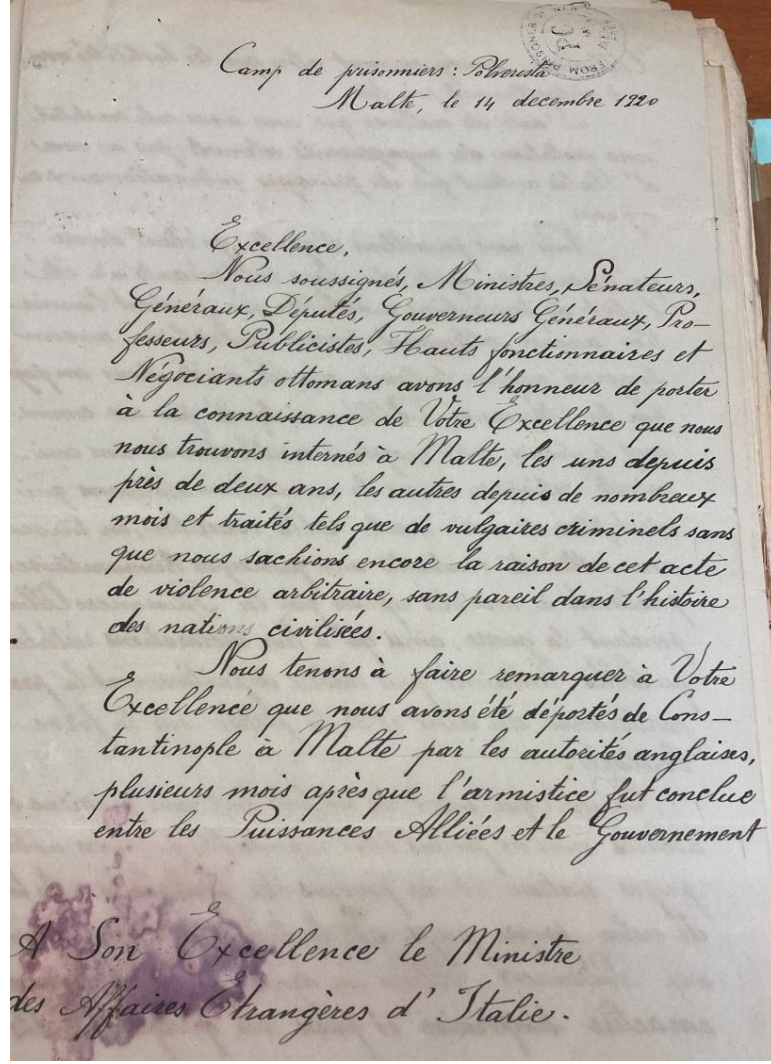 Camp de prisonniers: Polverista
Malte, le 14 decembre 1920
Excellence,
Nous soussignés, Ministres, Sénateurs,
Généraux, Députés, Gouverneurs Généraux, Pro-
fesseurs, Publicistes, Hauts fonctionnaires et
Négociants ottomans avons l'honneur de porter
à la connaissance de Votre Excellence que nous
nous trouvons internés à Malte, les uns depuis
près de deux ans, les autres depuis de nombreux
mois et traités tels que de vulgaires criminels sans
que nous sachions encore la raison de cet acte
de violence arbitraire, sans pareil dans l'histoire
des nations civilisées.
Nous tenons à faire remarquer à Votre
Excellence que nous avons été déportés de Cons-
tantinople à Malte par les autorités anglaises,
plusieurs mois après que l'armistice fut conclue
entre les Puissances Alliées et le Gouvernement
A Son Excellence le Ministre
des Affaires Etrangères d'Italie.